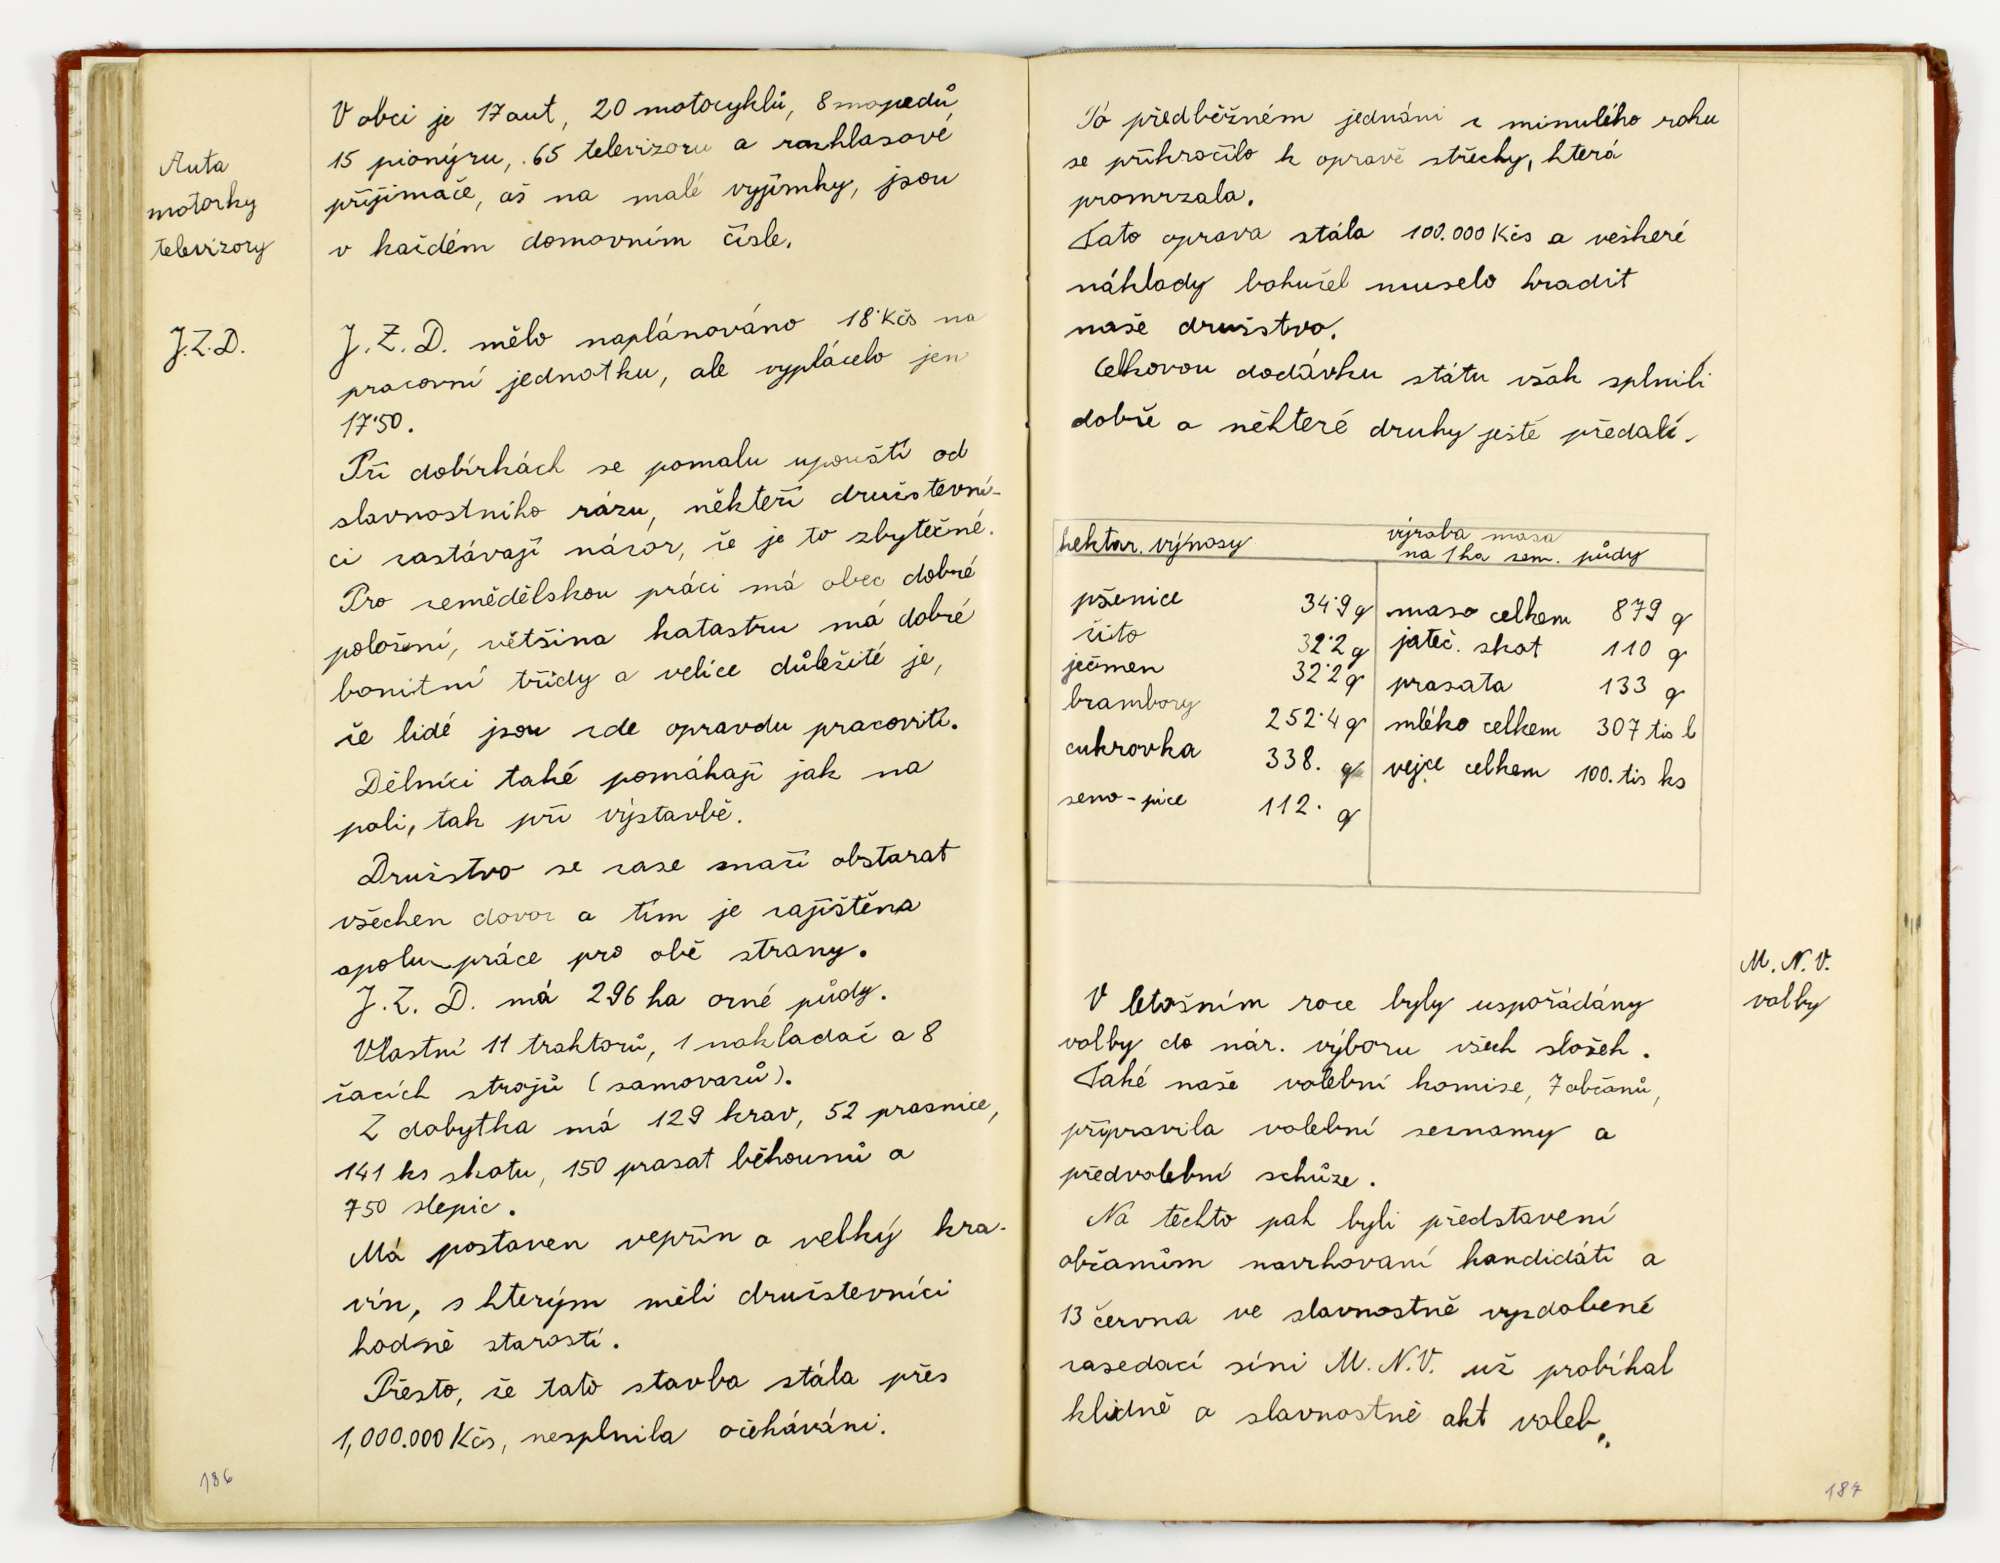 Auta
motorky
televizory
V obci je 17 aut, 20 motocyklů, 8 mopedů
15 pionýru, 65 televizoru a rozhlasové
přijimače, až na malé vyjímky, jsou
v každém domovním čísle.
J.Z.D.
J.Z.D. mělo naplánováno 18·Kčs na
pracovní jednotku, ale vyplácelo jen
17·50.
Při dobírkách se pomalu upouští od
slavnostního rázu, někteří družstevní-
ci zastávají názor, že je to zbytečné.
Pro zemědělskou práci má obec dobré
položení, většina katastru má dobré
bonitní třídy a velice důležité je,
že lidé jsou zde opravdu pracovití.
Dělníci také pomáhají jak na
poli, tak při výstavbě.
Družstvo se zase snaží obstarat
všechen dovoz a tím je zajištěna
spolupráce pro obě strany.
J.Z.D. má 296 ha orné půdy.
Vlastní 11 traktorů, 1 nakladač a 8
žacích strojů (samovazů).
Z dobytka má 129 krav, 52 prasnice,
141 ks skotu, 150 prasat běhounů a
750 slepic.
Má postaven vepřín a velký kra-
vín, s kterým měli družstevníci
hodně starostí.
Přesto, že tato stavba stála přes
1,000.000 Kčs, nesplnila očekáváni.
186
Pó předběžném jednáni z minulého roku
se přikročilo k opravě střechy, která
promrzala.
Tato oprava stála 100.000 Kčs a veškeré
náklady bohužel muselo hradit
naše družstvo.
Celkovou dodávku státu však splnili
dobře a některé druhy ještě předali.
hektar. výnosy
výroba masa
na 1 ha zem. půdy
pšenice 34·9 q maso celkem 879 q
žito 32·2 q jateč. skot 110 q
ječmen 32·2 q prasata 133 q
brambory 252·4 q mléko celkem 307 tis l
cukrovka 338. q vejce celkem 100. tis ks
seno - pice 112· q
M.N.V.
volby
V letošním roce byly uspořádány
volby do nár. výboru všech složek.
Také naše volební komise, 7 občanů,
připravila volební seznamy a
předvolební schůze.
Na těchto pak byli představení
občanům navrhovaní kandidáti a
13 června ve slavnostně vyzdobené
zasedací síni M.N.V. už probíhal
klidně a slavnostně akt voleb.
187